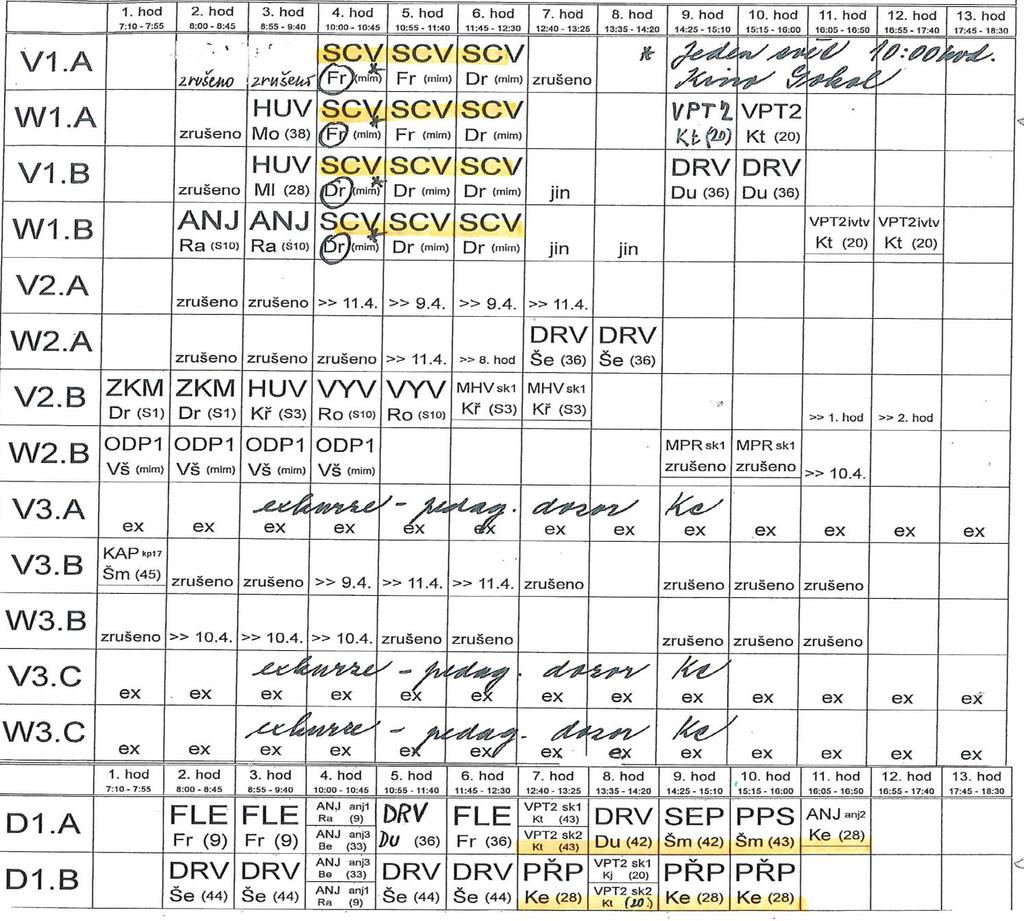 1. hod 2. hod 3. hod 4. hod 5. hod 6. hod 7. hod 8. hod 9. hod 10. hod 11. hod 12. hod 13. hod
7:10 - 7:55 8:00 - 8:45 8:55 - 9:40 10:00 - 10:45 10:55 - 11:40 11:45 - 12:30 12:40 - 13:25 13:35 - 14:20 14:25 - 15:10 15:15 - 16:00 16:05 - 16:50 16:55 - 17:40 17:45 - 18:30
V1.A SCV SCV SCV * Jeden svět 10:00 hod.
zrušeno zrušeno Fr (mim) * Fr (mim) Dr (mim) zrušeno Kino Sokol
W1.A HUV SCV SCV SCV VPT2 VPT2
zrušeno Mo (38) Fr (mim) * Fr (mim) Dr (mim) Kt (20) Kt (20)
V1.B HUV SCV SCV SCV DRV DRV
zrušeno Ml (28) Dr (mim) * Dr (mim) Dr (mim) jin Du (36) Du (36)
W1.B ANJ ANJ SCV SCV SCV VPT2ivtv VPT2ivtv
Ra (S10) Ra (S10) Dr (mim) * Dr (mim) Dr (mim) jin jin Kt (20) Kt (20)
V2.A zrušeno zrušeno >> 11.4. >> 9.4. >> 9.4. >> 11.4.
W2.A DRV DRV
zrušeno zrušeno zrušeno >> 11.4. >> 8. hod Še (36) Še (36)
V2.B ZKM ZKM HUV VYV VYV MHV sk1 MHV sk1
Dr (S1) Dr (S1) Kř (S3) Ro (S10) Ro (S10) Kř (S3) Kř (S3) >> 1. hod >> 2. hod
W2.B ODP1 ODP1 ODP1 ODP1 MPR sk1 MPR sk1
Vš (mim) Vš (mim) Vš (mim) Vš (mim) zrušeno zrušeno >> 10.4.
V3.A exkurze - pedag. dozor Kc
ex ex ex ex ex ex ex ex ex ex ex ex ex
V3.B KAP kp17
Šm (45) zrušeno zrušeno >> 9.4. >> 11.4. >> 11.4. zrušeno zrušeno zrušeno zrušeno
W3.B zrušeno >> 10.4. >> 10.4. >> 10.4. zrušeno zrušeno zrušeno zrušeno zrušeno
V3.C exkurze - pedag. dozor Kc
ex ex ex ex ex ex ex ex ex ex ex ex ex
W3.C exkurze - pedag. dozor Kc
ex ex ex ex ex ex ex ex ex ex ex ex ex
1. hod 2. hod 3. hod 4. hod 5. hod 6. hod 7. hod 8. hod 9. hod 10. hod 11. hod 12. hod 13. hod
7:10 - 7:55 8:00 - 8:45 8:55 - 9:40 10:00 - 10:45 10:55 - 11:40 11:45 - 12:30 12:40 - 13:25 13:35 - 14:20 14:25 - 15:10 15:15 - 16:00 16:05 - 16:50 16:55 - 17:40 17:45 - 18:30
D1.A FLE FLE ANJ anj1 Ra (9) DRV FLE VPT2 sk1 Kt (43) DRV SEP PPS ANJ anj2
Fr (9) Fr (9) ANJ anj3 Be (33) Du (36) Fr (36) VPT2 sk2 Kt (43) Du (42) Šm (42) Šm (43) Ke (28)
D1.B DRV DRV ANJ anj3 Be (33) DRV DRV PŘP VPT2 sk1 Kj (20) PŘP PŘP
Še (44) Še (44) ANJ anj1 Ra (9) Še (44) Še (44) Ke (28) VPT2 sk2 Kt (20.) Ke (28) Ke (28)